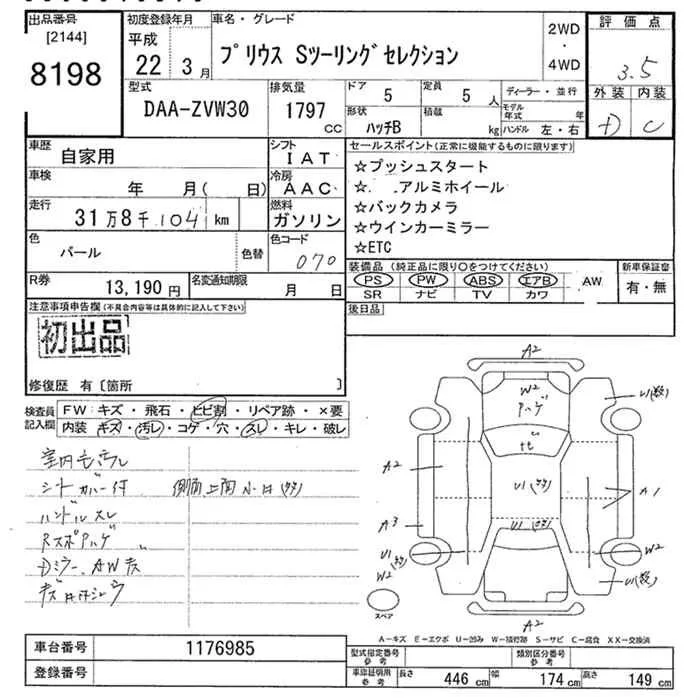 出品番号
[2144]
8198
初度登録年月
平成
22 3月
車名・グレード
プリウス Sツーリングセレクション
2WD
・
4WD
評価点
3.5
外装 内装
D C
型式
DAA-ZVW30
排気量
1797
CC
ドア
5
定員
5 人
形状
ハッチB
積載
kg
ディーラー・並行
モデル年式 年
ハンドル 左・右
車歴
自家用
シフト
IAT
車検
年 月( 日)
冷房
AAC
走行
31万8千104 km
燃料
ガソリン
色
パール
色替
色コード
070
R券
13,190円
名変通知期限
月 日
セールスポイント(正常に機能するものに限ります)
☆プッシュスタート
☆ アルミホイール
☆バックカメラ
☆ウインカーミラー
☆ETC
装備品(純正品に限り○をつけてください)
PS PW ABS エアB AW
SR ナビ TV カワ
新車保証書
有・無
後日品
注意事項申告欄(不具合内容等は具体的に記入して下さい)
初出品
修復歴 有〔箇所 〕
検査員記入欄
FW:キズ・飛石・ヒビ割・リペア跡・×要
内装 キズ・汚レ・コゲ・穴・スレ・キレ・破レ
シートカバー付
ハンドルスレ
Dミラー、AWキズ
A2
W2
ハゲ
U1(数)
A2
U1
A1
A3
U1
U1
W2
W2
U1(数)
A2
スペア
A-キズ E-エクボ U-凹み W-補修跡 S-サビ C-腐食 XX-交換済
車台番号
1176985
登録番号
型式指定番号
参考
類別区分番号
参考
車庫証明用
参考
長さ 446 cm 幅 174 cm 高さ 149 cm